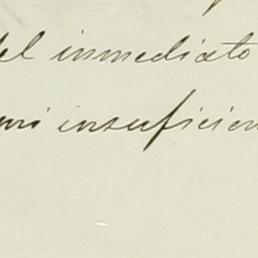 del inmediato
mi insuficien